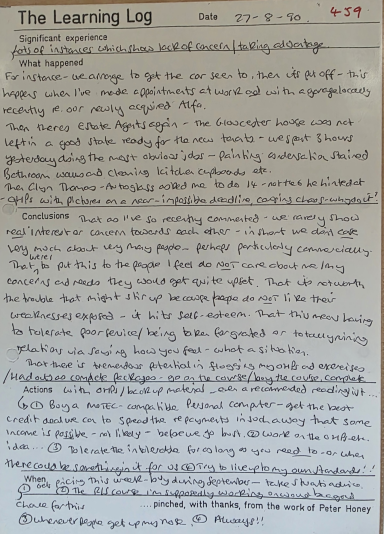 The Learning Log Date 27-8-90. 459
Significant experience
Lots of instances which show lack of concern/taking advantage.
What happened
For instance - we arrange to get the car seen to, then its put off - this
happens when I've made appointments at work and with a garage locally
recently re. our newly acquired Alfa.
Then theres Estate Agents again - the Gloucester house was not
left in a good state ready for the new tenants - we spent 8 hours
yesterday doing the most obvious jobs - Painting condensation stained
Bathroom walls and cleaning kitchen cupboards etc.
Then Clyn Thomas - Autoglass asked me to do 14 - not the 6 he hinted at
- OHPs with pictures on a near-impossible deadline, causing chaos - why do it?
Conclusions That as I've so recently commented - we rarely show
real interest or concern towards each other - in short we don't care
very much about very many people - perhaps particularly commercially.
That, were I to put this to the people I feel do NOT care about me/my
concerns and needs they would get quite upset. That its not worth
the trouble that might stir up because people do NOT like their
weaknesses exposed - it hits self-esteem. That this means having
to tolerate poor service/being taken for granted or totally ruining
relations via saying how you feel - what a situation.
That there is tremendous potential in flogging my OHPs and exercises
/Handouts as complete packages - go on the course/buy the course, complete
Actions with OHPs/back up material - even a recommended reading list...
① Buy a MoTEC-compatible Personal Computer - get the best
credit deal we can to spread the repayments in such a way that some
income is possible - not likely - before we go bust. ② work on the OHP etc.
idea... ③ Tolerate the intolerable for as long as you need to - or when
there could be something in it for us ④ Try to live up to my own standards!!
When ① Get pricing this week - buy during September - take advice.
② The RLS course I'm supposedly working on would be a good
chance for this ....pinched, with thanks, from the work of Peter Honey
③ whenever People get up my nose. ④ Always!!